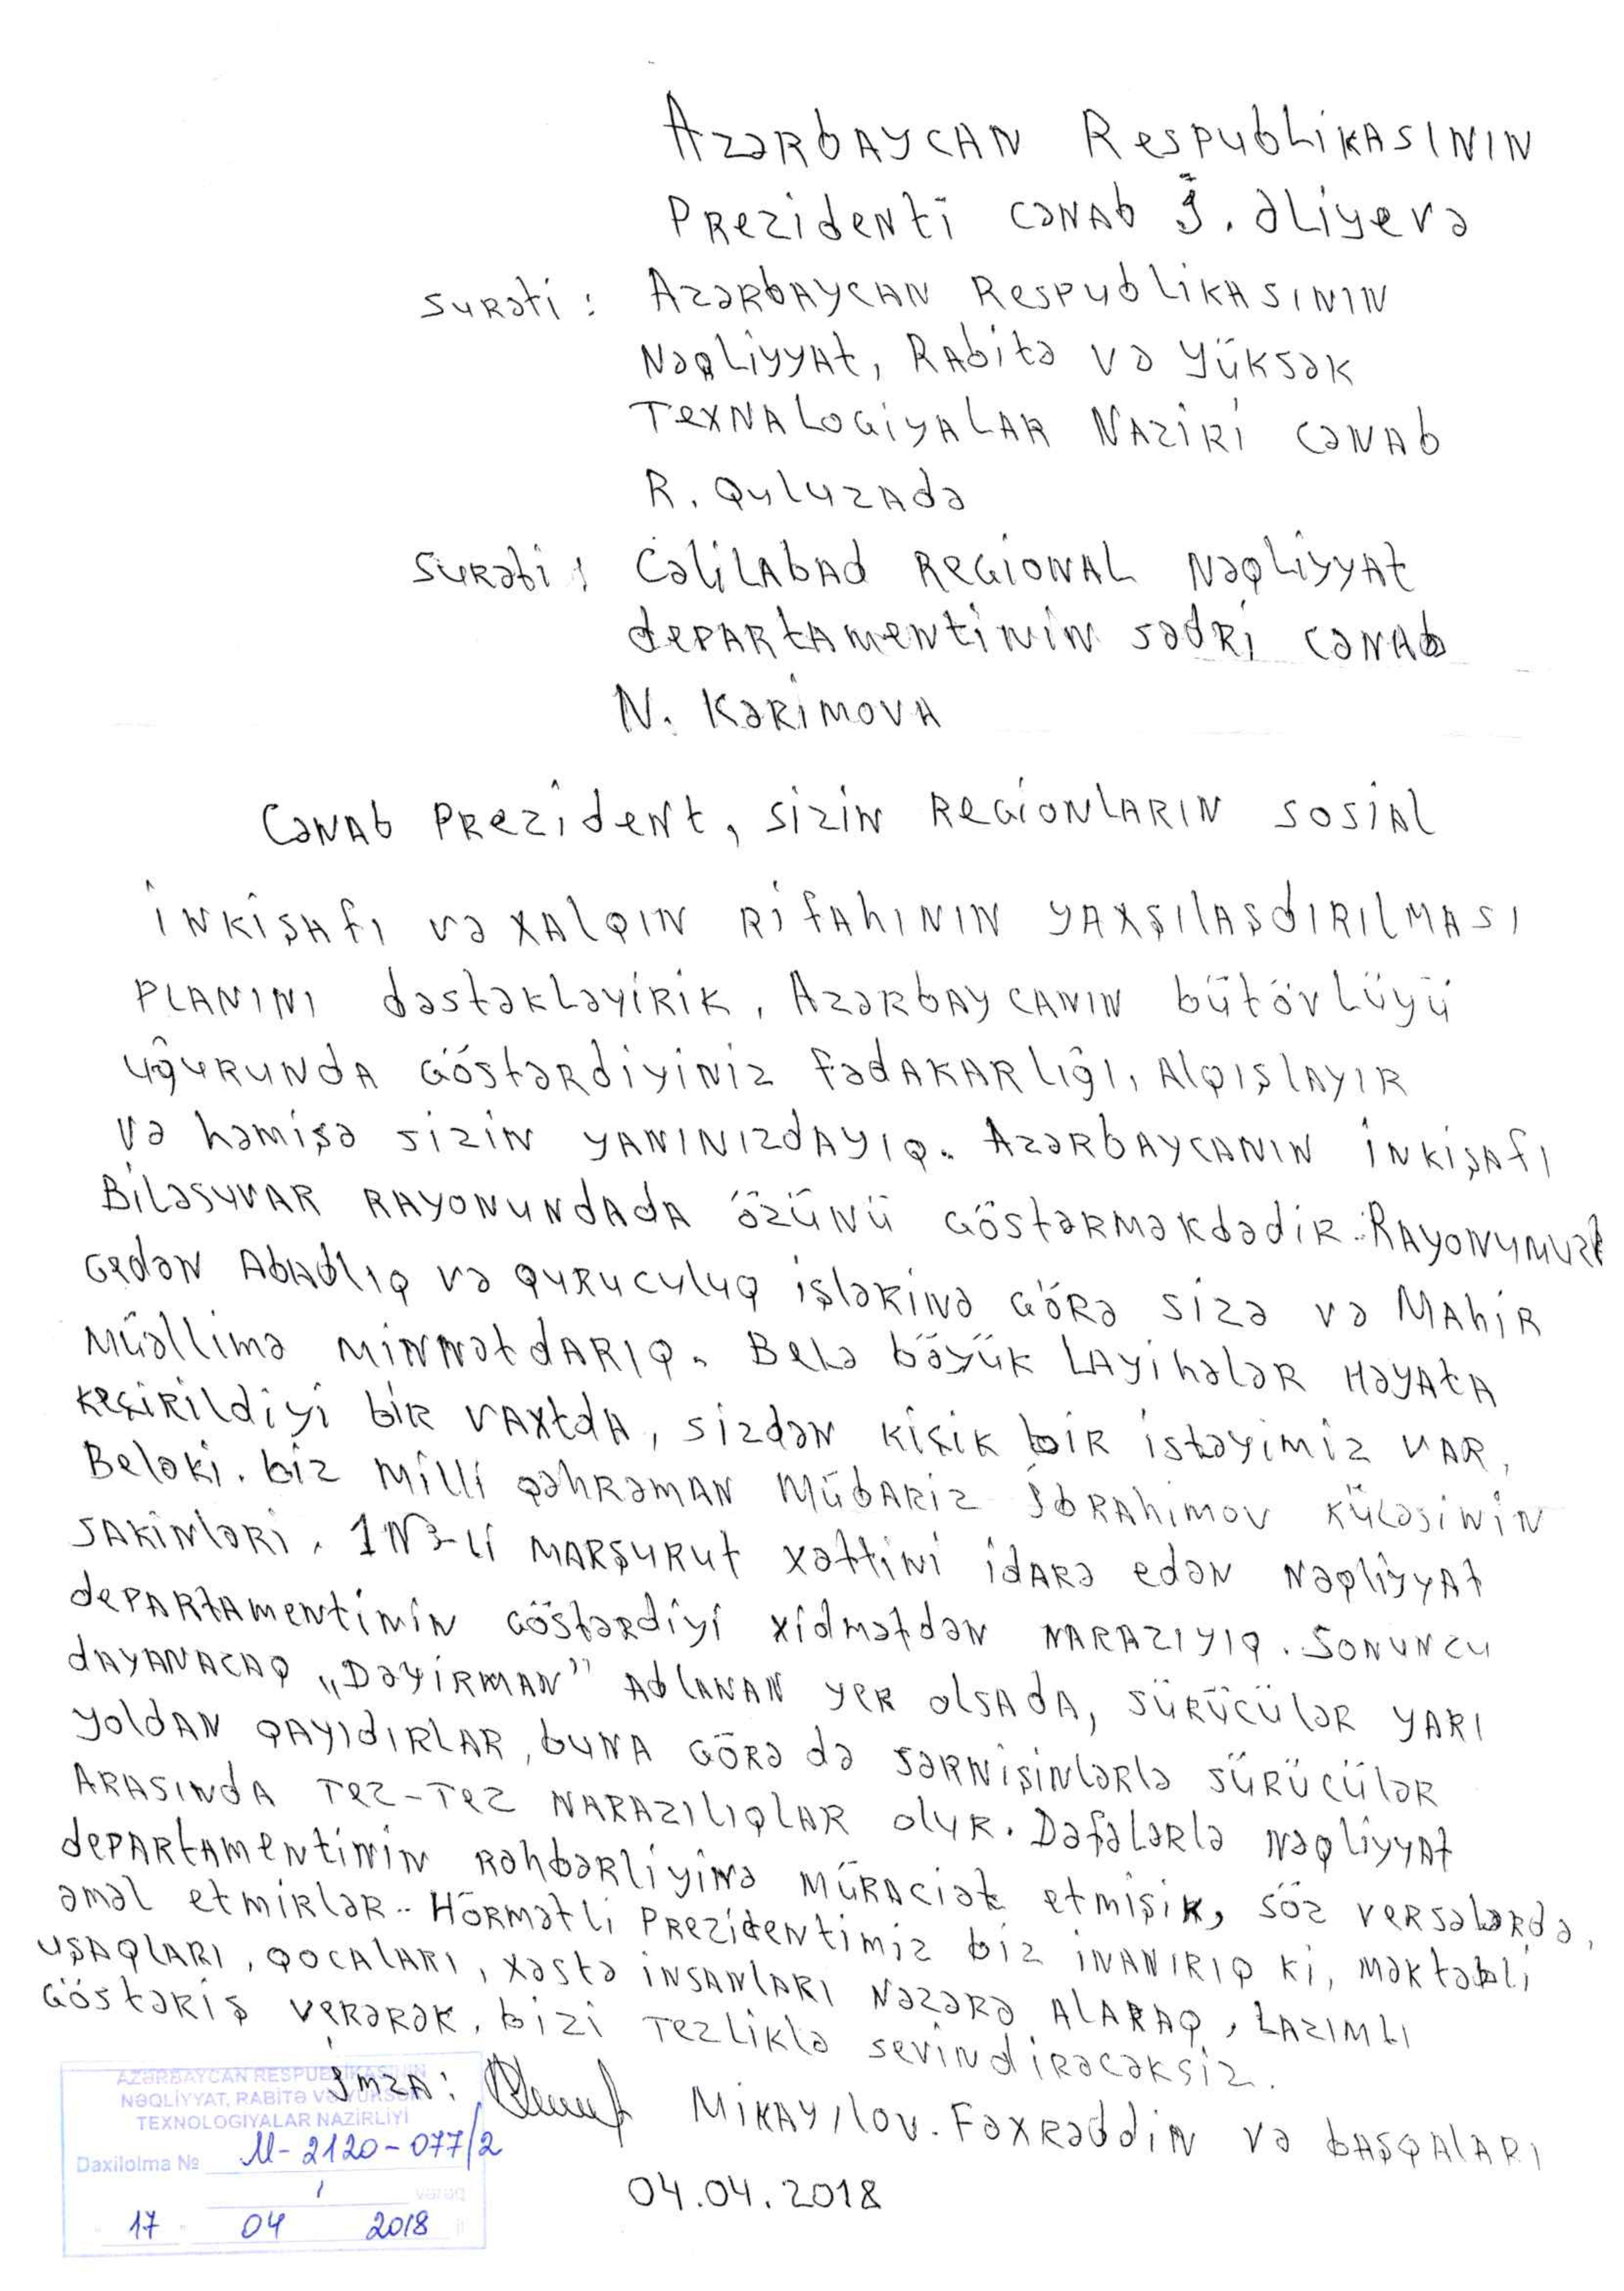 Azərbaycan Respublikasının
Prezidenti cənab İ. Əliyevə
Surəti: Azərbaycan Respublikasının
Nəqliyyat, Rabitə və Yüksək
Texnalogiyalar Naziri cənab
R. Quluzadə
Surəti: Cəlilabad Regional Nəqliyyat
departamentinin sədri cənab
N. Kərimova
Cənab Prezident, sizin regionların sosial
inkişafı və xalqın rifahının yaxşılaşdırılması
planını dəstəkləyirik. Azərbaycanın bütövlüyü
uğurunda göstərdiyiniz fədakarlığı, alqışlayır
və həmişə sizin yanınızdayıq. Azərbaycanın inkişafı
Biləsuvar rayonundada özünü göstərməkdədir. Rayonumuzda
gedən abadlıq və quruculuq işlərinə görə sizə və Mahir
müəllimə minnətdarıq. Belə böyük layihələr həyata
keçirildiyi bir vaxtda, sizdən kiçik bir istəyimiz var,
Beləki. biz Milli qəhrəman Mübariz İbrahimov küçəsinin
sakinləri. 1№-li marşurut xəttini idarə edən nəqliyyat
departamentinin göstərdiyi xidmətdən narazıyıq. Sonuncu
dayanacaq "Dəyirman" adlanan yer olsada, sürücülər yarı
yoldan qayıdırlar, buna görə də sərnişinlərlə sürücülər
arasında tez-tez narazılıqlar olur. Dəfələrlə nəqliyyat
departamentinin rəhbərliyinə müraciət etmişik, söz versələrdə,
əməl etmirlər.. Hörmətli Prezidentimiz biz inanırıq ki, məktəbli
uşaqları, qocaları, xəstə insanları nəzərə alaraq, lazımlı
göstəriş verərək, bizi tezliklə sevindirəcəksiz.
İmza: Mikayılov. Fəxrəddin və başqaları
04.04.2018
AZƏRBAYCAN RESPUBLİKASININ
NƏQLİYYAT, RABİTƏ VƏ YÜKSƏK
TEXNOLOGİYALAR NAZİRLİYİ
Daxilolma № M-2120-077/2
1 vərəq
17 04 2018 il